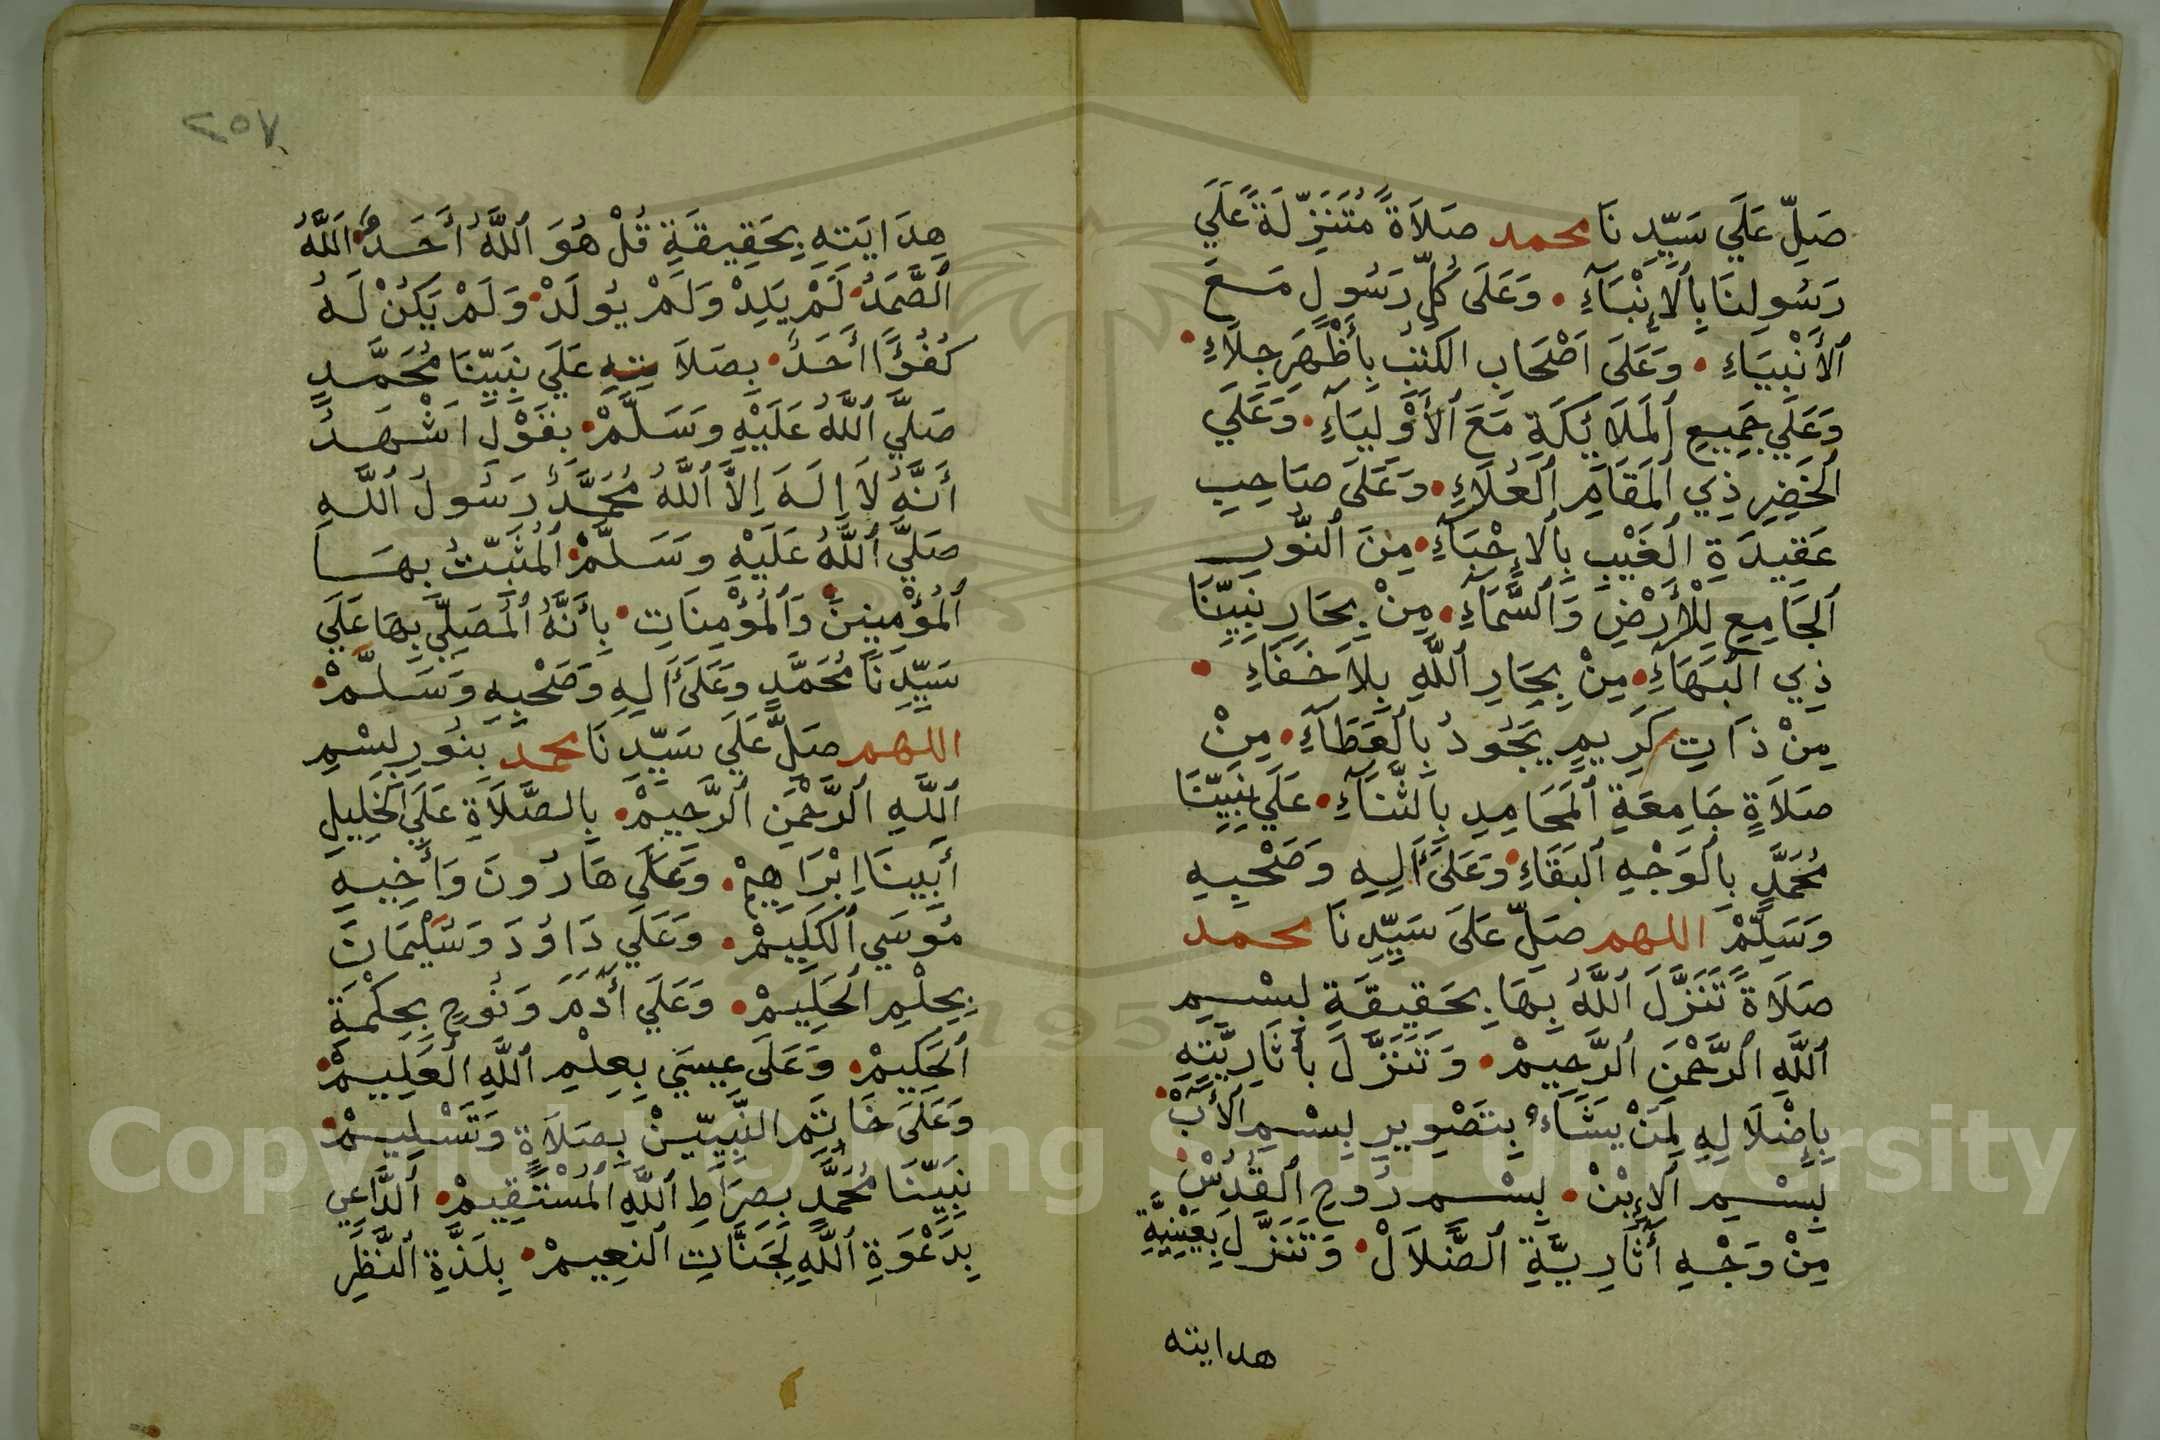 صَلِّ عَلَي سَيِّدِنَا محمد صَلَاةً مُتَنَزِّلَةً عَلَي
رَسُولِنَا بِالْاِنْبَآءِ • وَعَلَى كُلِّ رَسُولٍ مَعَ
الْأَنْبِيَاءِ • وَعَلَى اَصْحَابِ الكتبِ بِأَظْهَرِ جِلَاءِ •
وَعَلَي جَمِيعِ الْمَلَائِكَةِ مَعَ الْأَوْلِيَآءِ • وَعَلَي
الْخَضِرِ ذِي الْمَقَامِ الْعُلَاءِ • وَعَلَى صَاحِبِ
عَقِيدَةِ الْغَيْبِ بِالْاِحْبَآءِ • مِنَ النُّورِ
الْجَامِعِ لِلْأَرْضِ وَالسَّمَآءِ • مِنْ بِحَارِ نَبِيِّنَا
ذِي الْبَهَآءِ • مِنْ بِحَارِ اللَّهِ بِلَا خَفَاءِ •
مِنْ ذَاتِ كَرِيمٍ يَجُودُ بِالْعَطَآءِ • مِنْ
صَلَاةٍ جَامِعَةِ الْمَحَامِدِ بِالثَّنَآءِ • عَلَي نَبِيِّنَا
مُحَمَّدٍ بِالْوَجْهِ الْبَقَاءِ • وَعَلَى أَلِهِ وَصَحْبِهِ
وَسَلِّمْ اللهم صَلِّ عَلَى سَيِّدِنَا محمد
صَلَاةً تَنَزَّلَ اللَّهُ بِهَا بِحَقِيقَةِ بِسْمِ
اللَّهِ الرَّحْمَنِ الرَّحِيمْ • وَتَنَزَّلَ بِأَثَارِيَّتِهِ
بِإِضْلَالِهِ لِمَنْ يَشَاءُ بِتَصْوِيرِ بِسْمِ الْأَبْ •
بِسْمِ الْاِبْنْ • بِسْمِ رُوحِ الْقُدُسْ •
مِنْ وَجْهِ أَثَارِيَّةِ الضَّلَالْ • وَتَنَزَّلَ بِعَيْنِيَّةِ
هدايته
٢٥٧
هِدَايَتِهِ بِحَقِيقَةِ قُلْ هُوَ اللَّهُ أَحَدٌ • اَللَّهُ
الصَّمَدُ • لَمْ يَلِدْ وَلَمْ يُولَدْ • وَلَمْ يَكُنْ لَهُ
كُفُؤًا أَحَدٌ • بِصَلَاتِهِ عَلَي نَبِيِّنَا مُحَمَّدٍ
صَلَّي اللَّهُ عَلَيْهِ وَسَلَّمْ • بِقَوْلِ اَشْهَدُ
أَنَّهُ لَا اِلَهَ اِلَّا اللَّهُ مُحَمَّدٌ رَسُولُ اللَّهِ
صَلَّي اللَّهُ عَلَيْهِ وَسَلَّمْ • الْمُثَبِّتُ بِهَا
الْمُؤْمِنِينَ وَالْمُؤْمِنَاتِ • بِأَنَّهُ الْمُصَلِّي بِهَا عَلَي
سَيِّدِنَا مُحَمَّدٍ وَعَلَى أَلِهِ وَصَحْبِهِ وَسَلَّمْ •
اللهم صَلِّ عَلَي سَيِّدِنَا محمد بِنُورِ بِسْمِ
اللَّهِ الرَّحْمَنِ الرَّحِيمْ • بِالصَّلَاةِ عَلَي الْخَلِيلِ
أَبِينَا اِبْرَاهِيمْ • وَعَلَي هَارُونَ وَأَخِيهِ
مُوسَي الْكَلِيمْ • وَعَلَي دَاوُدَ وَسُلَيْمَانَ
بِحِلْمِ الْحَلِيمْ • وَعَلَي أَدَمَ وَنُوحٍ بِحِكْمَةِ
الْحَكِيمْ • وَعَلَى عِيسَي بِعِلْمِ اللَّهِ الْعَلِيمْ •
وَعَلَى خَاتِمِ النَّبِيِّينْ بِصَلَاةٍ وَتَسْلِيمْ •
نَبِيِّنَا مُحَمَّدٍ بِصِرَاطِ اللَّهِ الْمُسْتَقِيمْ • الدَّاعِي
بِدَعْوَةِ اللَّهِ لِجَنَّاتِ النَعِيمْ • بِلَذَّةِ النَّظَرِ
Copyright © King Saud University